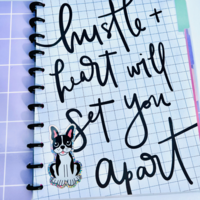 hustle +
heart will
set you
apart